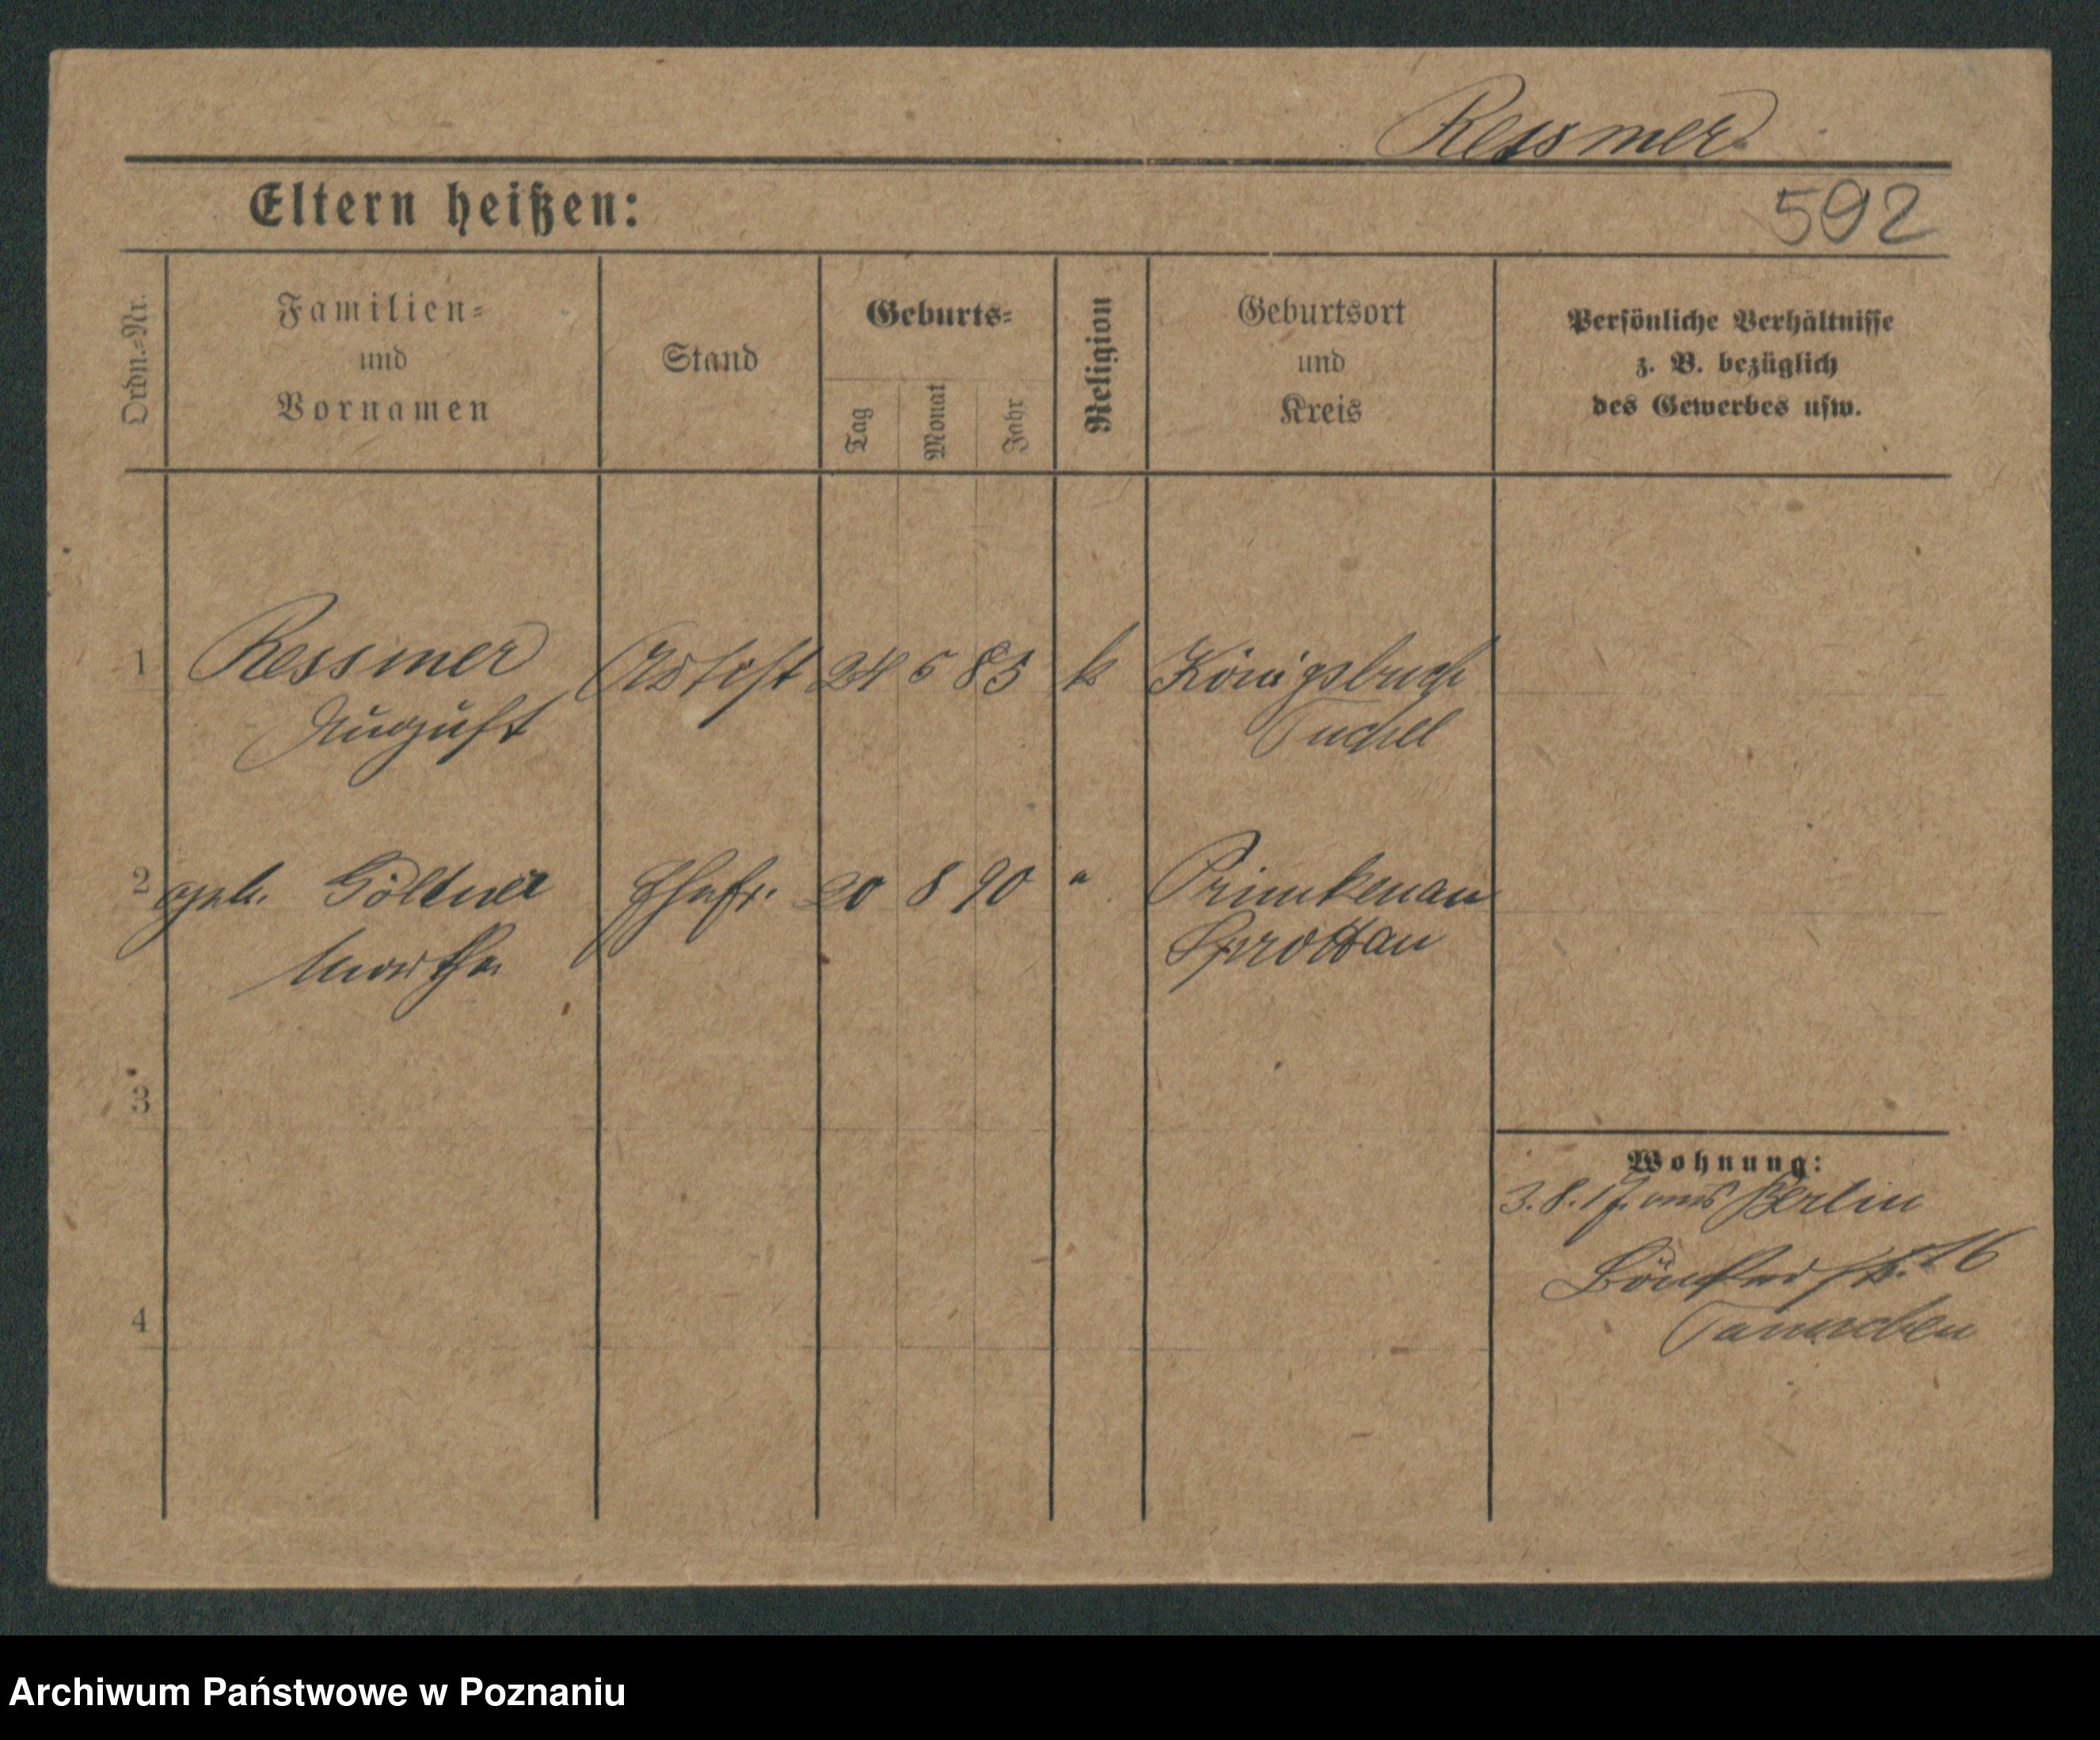 Ressmer
Eltern heißen:
592
Ordn.=Nr.
Familien=
und
Vornamen
Stand
Geburts=
Tag
Monat
Jahr
Religion
Geburtsort
und
Kreis
Persönliche Verhältnisse
z. B. bezüglich
des Gewerbes usw.
1 Ressmer 24 5 85 k Königsbruch
August Tuchel
2 geb. Göldner Ehefr. 20 8 90 " Primkenau
Martha Sprottau
3
4
Wohnung:
3.8.17. aus Berlin
str. 16
Archiwum Państwowe w Poznaniu